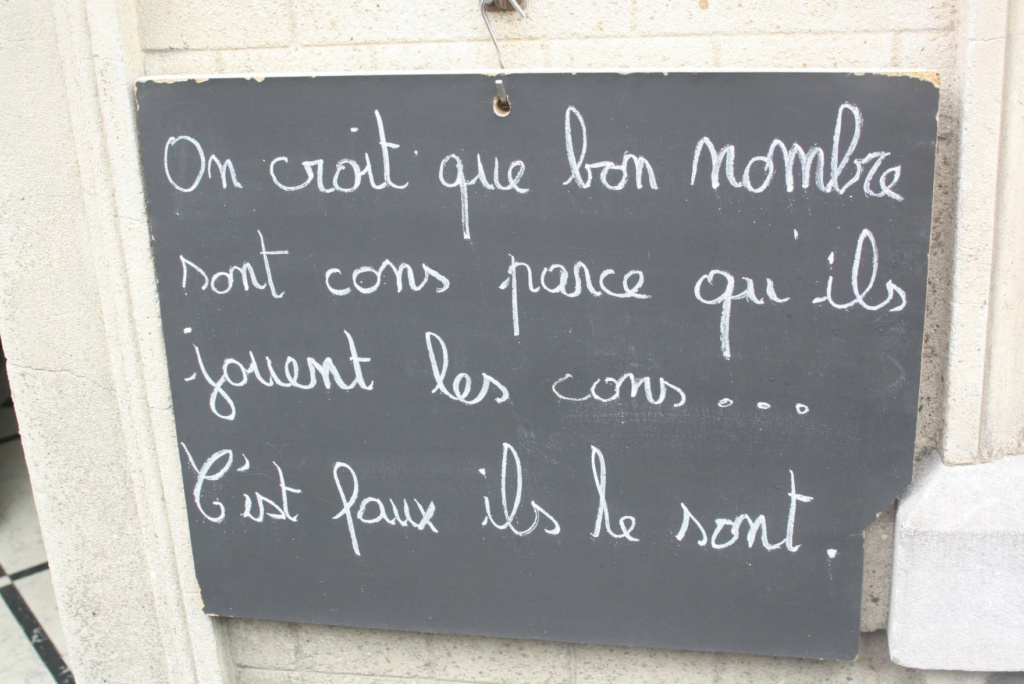 On croit que bon nombre
sont cons parce qu'ils
jouent les cons...
C'est faux ils le sont.